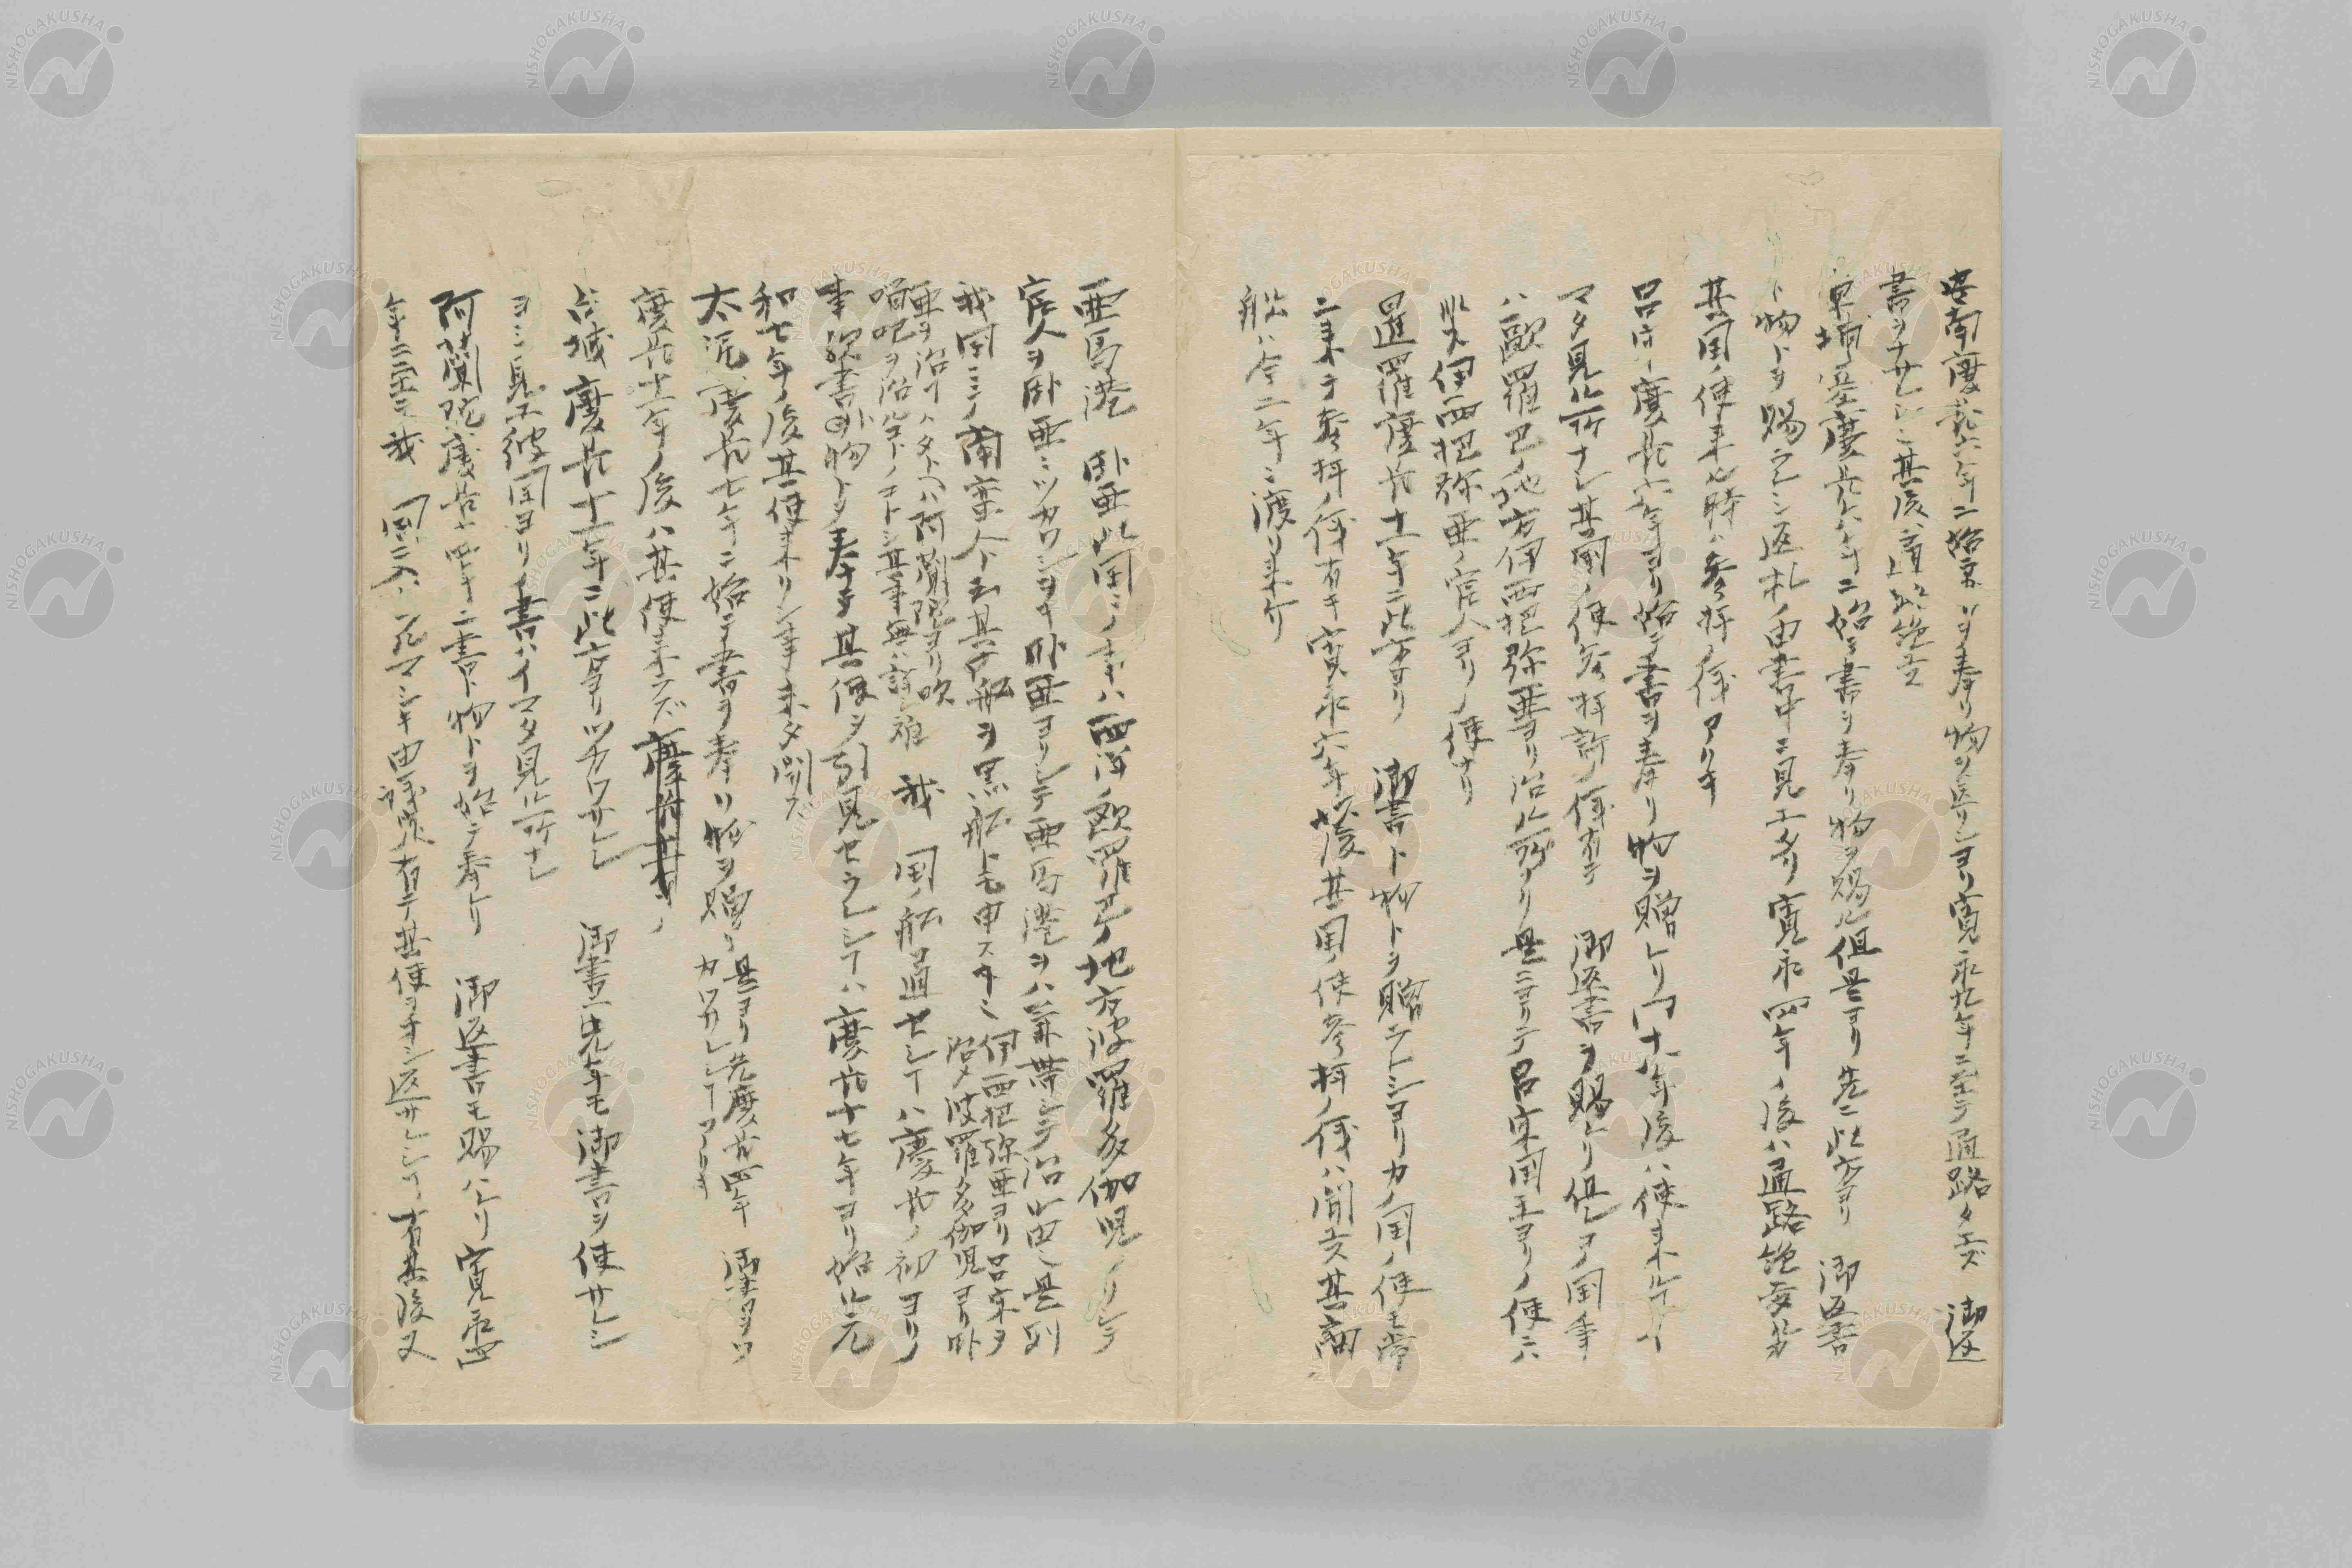 安南慶長六年ニ始テ書ヲ奉リ物ヲ送リシヨリ寛永九年ニ至テ通路タエズ 御返
書ヲナサレシニ其後ハ通路絶エ
柬埔寨慶長八年ニ始テ書ヲ奉リ物ヲ賜ル但是ヨリ先ニ此方ヨリ 御返書
ト物トヲ賜ラレシ返札ノ由書中ニ見エタリ寛永四年ノ後ハ通路絶
其国ノ使来ル時ハ参拝ノ儀アリキ
呂宋慶長六年ヨリ始テ書ヲ奉リ物ヲ贈レリ同十八年後ハ使来ルコトイ
マタ見ル所ナシ其国ノ使参拝許ノ儀有テ 御返書ヲ賜ヘリ但シコノ国
ハ歐羅巴ノ地方伊西把弥亜ヨリ治ル所ナリ是ニヨリテ呂宋国王ヨリノ使ニハ
非ス伊西把弥亜ノ官人ヨリノ使ナリ
暹羅慶長十一年ニ此方ヨリ 御書ト物トヲ贈ラレシヨリカノ国ノ使モ常
ニ来テ奉拝ノ儀有キ寛永六年ノ後其国ノ使参拝ノ儀ハ聞エス其商
船ハ今ニ年々渡リ来ケリ
亜馬港 臥亜此国ニノ事ハ西洋ノ欧羅巴ノ地方波羅多伽児ノ
官人ヲ臥亜ニツカワシヲキ臥亜ヨリシテ亜馬港ヲハ兼帯シテ治ル由也是則
我国ニテノ南蛮人ト云其商船ヲ黒船トモ申スナリ 伊西把弥亜ヨリ呂宋ヲ
治メ波羅多伽児ヨリ臥
亜ヲ治メハタトヘハ阿蘭陀ヨリ咬
𠺕吧ヲ治ルコトノコトシ其事無ハ 我 国ノ船ヲ通セシコトハ慶長ノ初ヨリノ
事次書ト物トヲ奉テ其使ヲ引見セラレシコトハ慶長十七年ヨリ始ル元
和七年ノ後其使来リシ事未タ聞ス
太泥慶長七年ニ始テ書ヲ奉リ物ヲ贈ル 是ヨリ先慶長四年 御書ヲツ
カワサレシコトアリキ
慶長十一年ノ後ハ其使来ラズ
占城慶長十一年ニ此方ヨリツカワサレシ 御書ニ先年モ御書ヲ使サレシ
ヨシ見エ彼国ヨリノ書ハイマタ見ル所ナシ
阿蘭陀慶長十四年ニ書ト物トヲ始テ奉レリ 御返書モ賜ハレリ寛永四
年ニ至テ我 国ニ入ルマシキ由有テ其使ヲヲシ返サレシコト有其後又